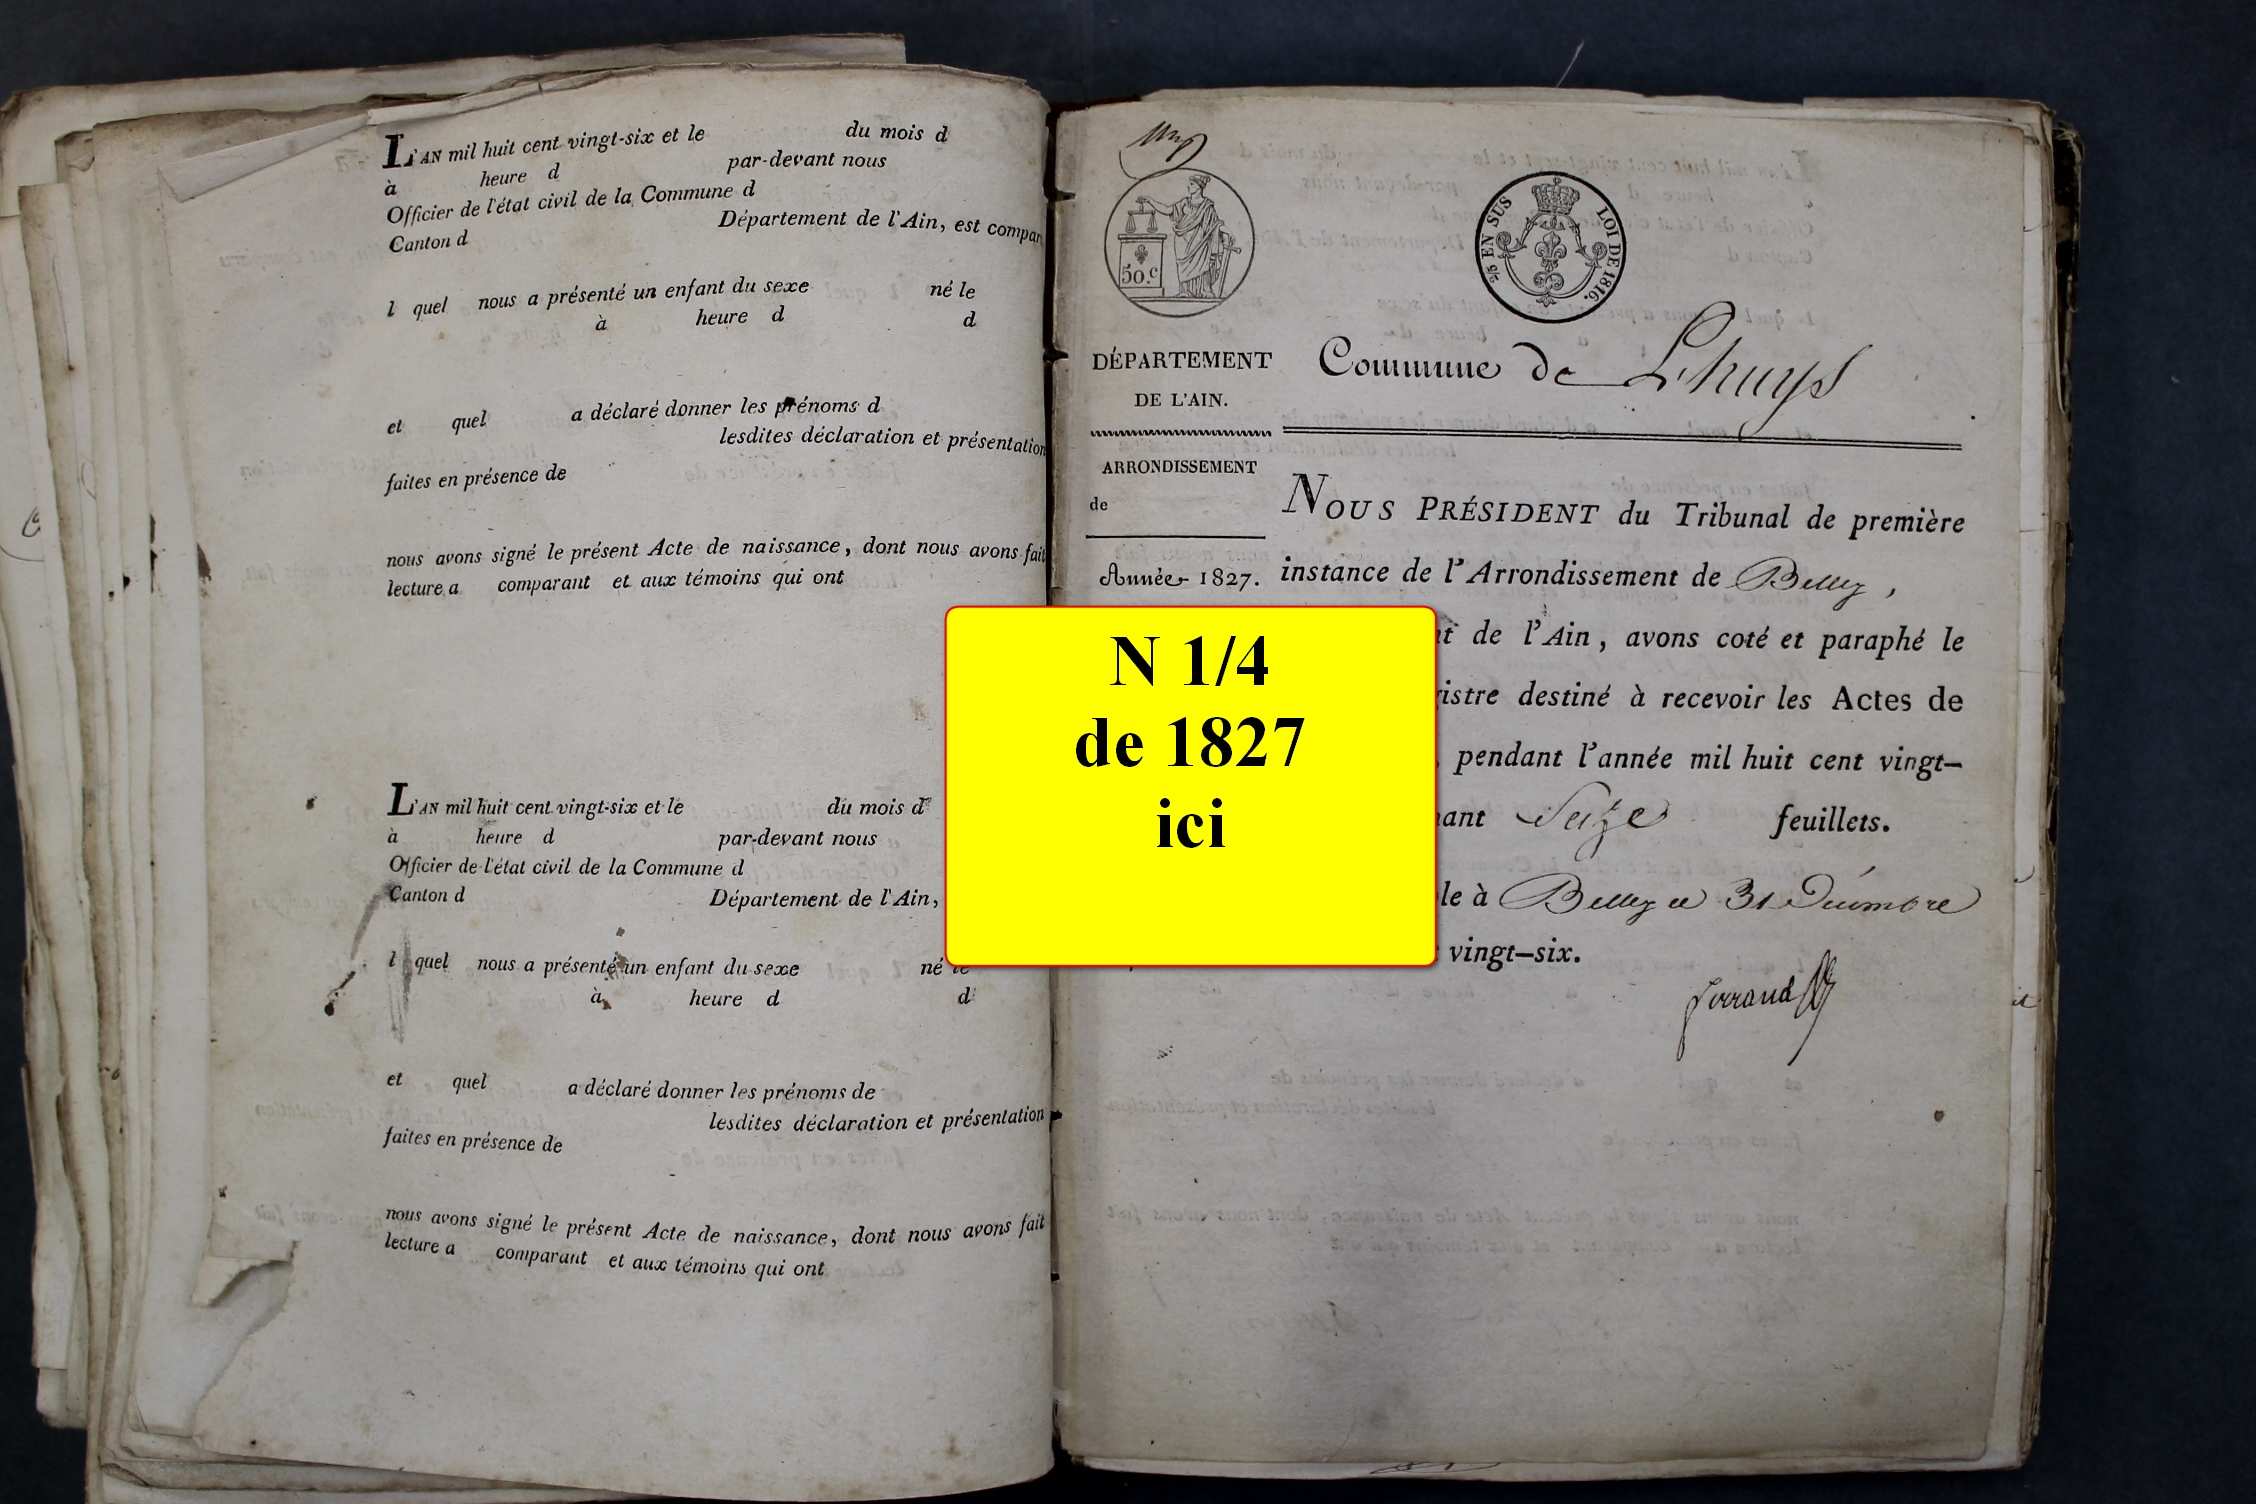 L'AN mil huit cent vingt-six et le du mois d
à heure d par-devant nous
Officier de l'état civil de la Commune d
Canton d Département de l'Ain, est compar
l quel nous a présenté un enfant du sexe né le
à heure d d
et quel a déclaré donner les prénoms d
lesdites déclaration et présentation
faites en présence de
nous avons signé le présent Acte de naissance, dont nous avons fait
lecture a comparant et aux témoins qui ont
L'AN mil huit cent vingt-six et le du mois d
à heure d par-devant nous
Officier de l'état civil de la Commune d
Canton d Département de l'Ain,
l quel nous a présenté un enfant du sexe né le
à heure d d
et quel a déclaré donner les prénoms de
lesdites déclaration et présentation
faites en présence de
nous avons signé le présent Acte de naissance, dont nous avons fait
lecture a comparant et aux témoins qui ont
50.c
2/5 EN SUS LOI DE 1816.
DÉPARTEMENT
DE L'AIN.
ARRONDISSEMENT
de
Année 1827.
Commune de Lhuys
NOUS PRÉSIDENT du Tribunal de première
instance de l'Arrondissement de Belley,
t de l'Ain, avons coté et paraphé le
istre destiné à recevoir les Actes de
, pendant l'année mil huit cent vingt-
nant Seize feuillets.
le à Belley ce 31 Décembre
vingt-six.
N 1/4
de 1827
ici